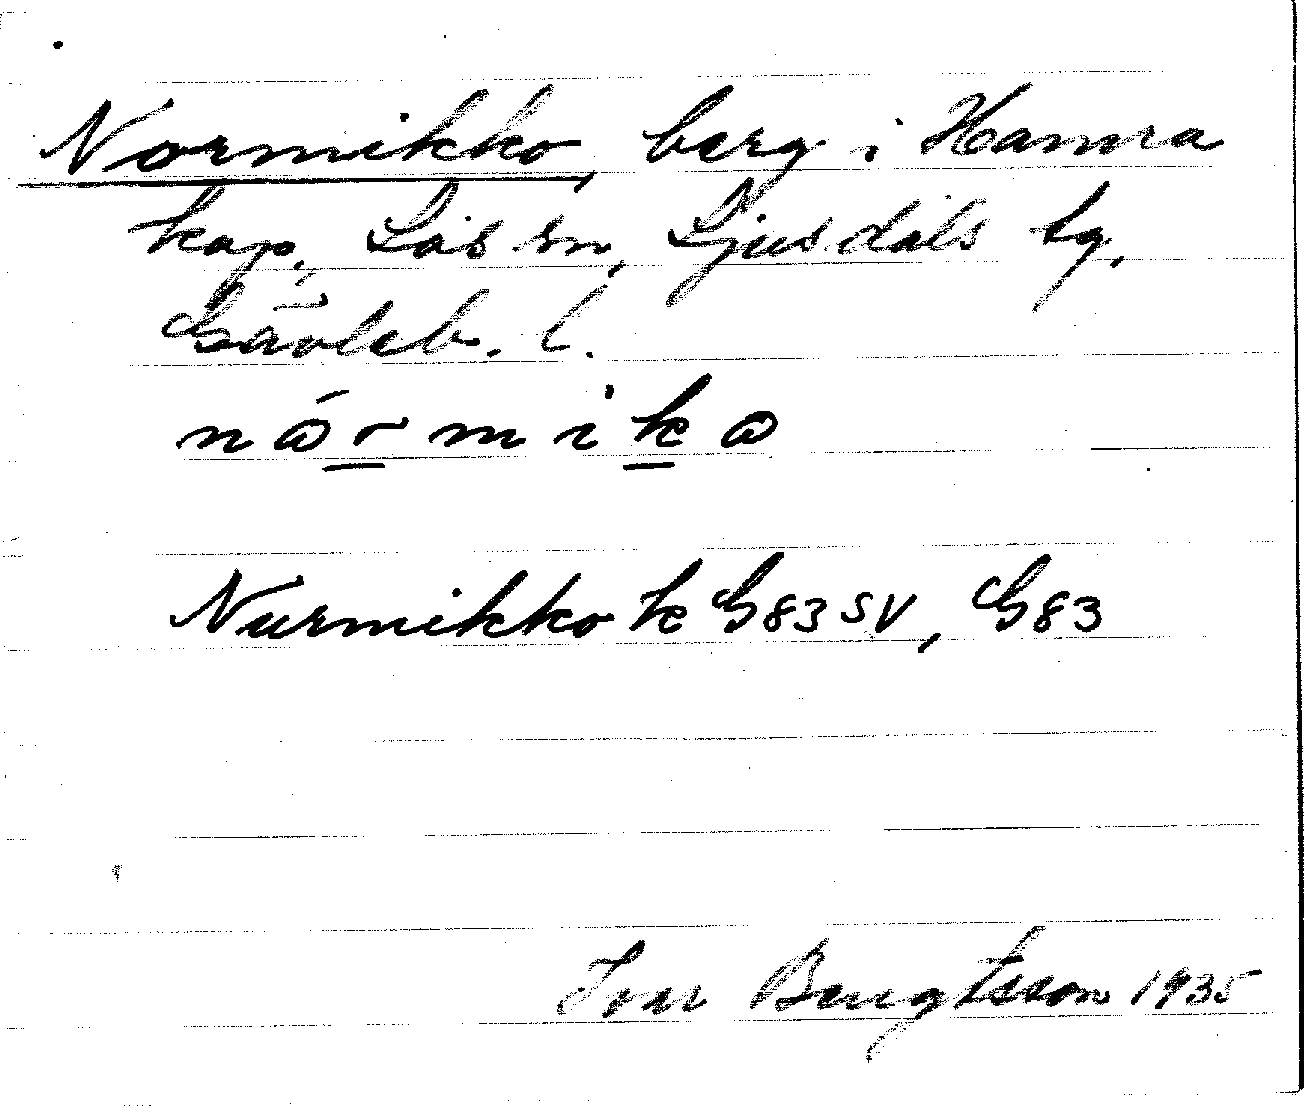 Normikko, berg i Hamra
kap., Los sn, Ljusdals tg,
Gävleb. l.
nårmikå
Nurmikko k G83SV, G83
Ivar Bengtsson 1935